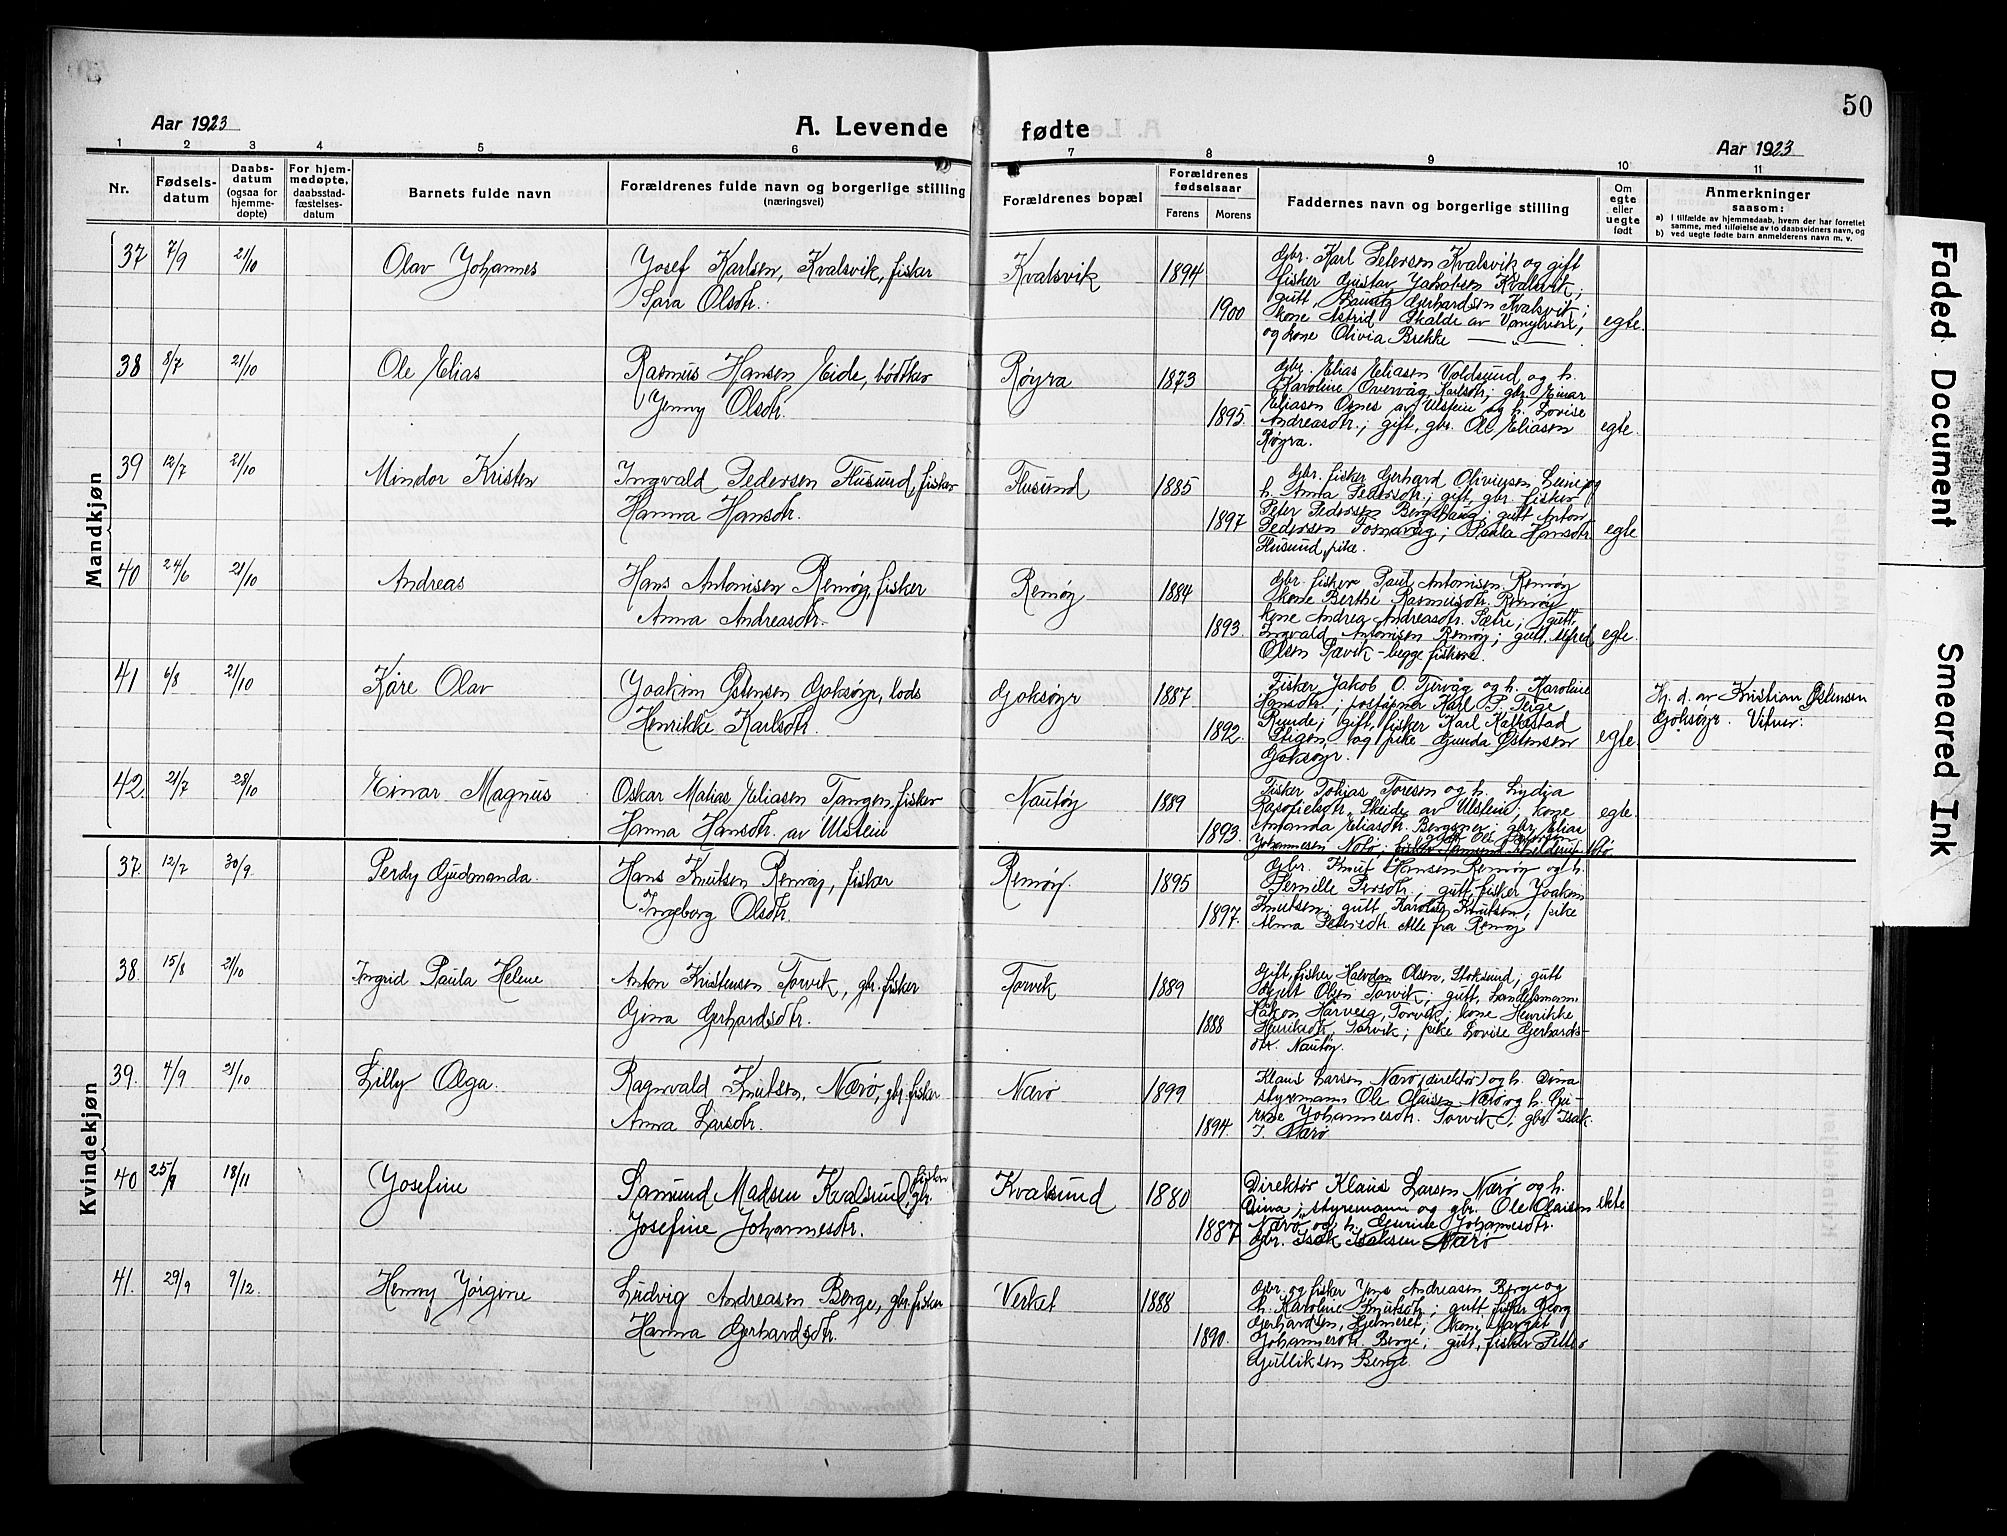 50
Aar 1923
A. Levende fødte
Aar 1923
1 2 3 4 5 6 7 8 9 10 11
Nr.
Fødsels-
datum
Daabs-
datum
(ogsaa for
hjemme-
døpte)
For hjem-
medøpte,
daabsstad-
fæstelses-
datum
Barnets fulde navn
Forældrenes fulde navn og borgerlige stilling
(næringsvei)
Forældrenes bopæl
Forældrenes
fødselsaar
Farens Morens
Faddernes navn og borgerlige stilling
Om
egte
eller
uegte
født
Anmerkninger
saasom:
a) I tilfælde av hjemmedaab, hvem der har forrettet
samme, med tilføielse av to daabsvidners navn, og
b) ved uegte fødte barn anmelderens navn m. v.
Mandkjøn
37 7/9 21/10 Olav Johannes
Josef Karlsen, Kvalsvik, fisker
Sara Olsdtr.
Kvalsvik 1894 1900
Gbr. Karl Petersen Kvalsvik og gift
fisker Gustav Jakobsen Kvalsvik;
gutt, Gerhardsen Kvalsvik;
kone Astrid Skalde av Vanylven;
og kone Olivia Brekke — " —
egte.
38 8/7 21/10 Ole Elias
Rasmus Hansen Eide, bødtker
Jenny Olsdtr.
Røyra 1873 1895
Gbr. Elias Eliasen Voldsund og h.
Karoline Overvåg Karlsdtr.; gbr. Einar
Eliasen Osnes av Ulstein og h. Lovise
Andreasdtr.; gift, gbr. Ole Eliasen
Røyra.
egte.
39 12/7 21/10 Mindor Kristen
Ingvald Pedersen Flusund, fisker
Hanna Hansdtr.
Flusund 1885 1897
Gbr. fisker Gerhard Leine og
h. Anna Pedersdtr.; gift, gbr. fisker
Peter Pedersen Berghaug; gutt Anton
Pedersen Fosnavåg; Paula Hansdtr.
Flusund, pike.
egte
40 24/6 21/10 Andreas
Hans Antonisen Remøy, fisker
Anna Andreasdtr.
Remøy 1884 1893
Gbr. fisker Paul Antonisen Remøy
kone Berthe Rasmusdtr. Remøy
kone Andrea Andreasdtr. Sætre; gutt,
Ingvald Antonisen Remøy; gutt. Alfred
Olsen Sævik - begge fiskere.
egte.
41 6/8 21/10 Kåre Olav
Joakim Østensen Goksøyr, lods
Henrikke Karlsdtr.
Goksøyr 1887 1892.
Fisker Jakob O. Tjervåg og h. Karoline
Hansdtr.; poståpner Karl P. Terge
Runde; gift, fisker Karl Kalvestad
Stigen, og pike Gunda Østensen
Goksøyr.
egte.
Hj. d. av Kristian Østensen
Goksøyr. Vitner:
42. 21/7 28/10 Einar Magnus
Oskar Matias Eliasen Tangen, fisker
Hanna Hansdtr. av Ulstein
Nautøy 1889 1893.
Fisker Tobias Toresen og h. Lydia
Skeide av Ulstein; kone
Amanda Eliasdtr. Bergsnes; gbr. Elias
Johannesen Nolø;
egte
Kvindekjøn
37. 12/7 30/9. Perdy Gudmanda.
Hans Knutsen Remøy, fisker
Ingeborg Olsdtr.
Remøy. 1895 1897.
Gbr. Knut Hansen Remøy og h.
Pernille Persdtr.; gutt, fisker Joakim
Knutsen; gutt Karolus Knutsen, pike
Alma Petersdtr. Alle fra Remøy
38. 15/8 21/10 Ingrid Paula Helene
Anton Kristensen Torvik, gbr. fisker
Gina Gerhardsdtr.
Torvik 1889 1888
Gift, fisker Halvdan Olsen, Stoksund; gutt
Olsen Torvik; gutt, handelsmann
Håkon Torvik; kone Henrikke
Henriksdtr. Torvik; pike Lovise Gerhards-
dtr. Nautøy.
39. 4/9 21/10 Lilly Olga.
Ragnvald Knutsen, Nærø, gbr. fisker
Anna Larsdtr.
Nærø 1899 1894.
Klaus Larsen Nærø (direktør) og h. Dina
styrmann Ole Olaisen Nærø og h. Gu-
rine Johannesdtr. Torvik; gbr. Isak
I. Nærø
40 25/9 18/11 Josefine
Samund Madsen Kvalsund, gbr. fisker
Josefine Johannesdtr.
Kvalsund 1880 1887
Direktør Klaus Larsen Nærø og h.
Dina; styremann og gbr. Ole Olaisen
Nærø og h. Gurine Johannesdtr.
Gbr. Isak Isaksen Nærø
ekte
41. 29/9 9/12. Henny Jørgine
Ludvig Andreasen Berge, gbr. fisker
Hanna Gerhardsdtr.
Verket 1888 1890.
Gbr. og fisker Jens Andreasen Berge og
h. Karoline Knutsdtr.; gutt fisker Georg
Gerhardsen, Hjelmeset; Marget
Johannesdtr. Berge; gutt, fisker Petter
Gulliksen Berge.
Faded Document
Smeared Ink